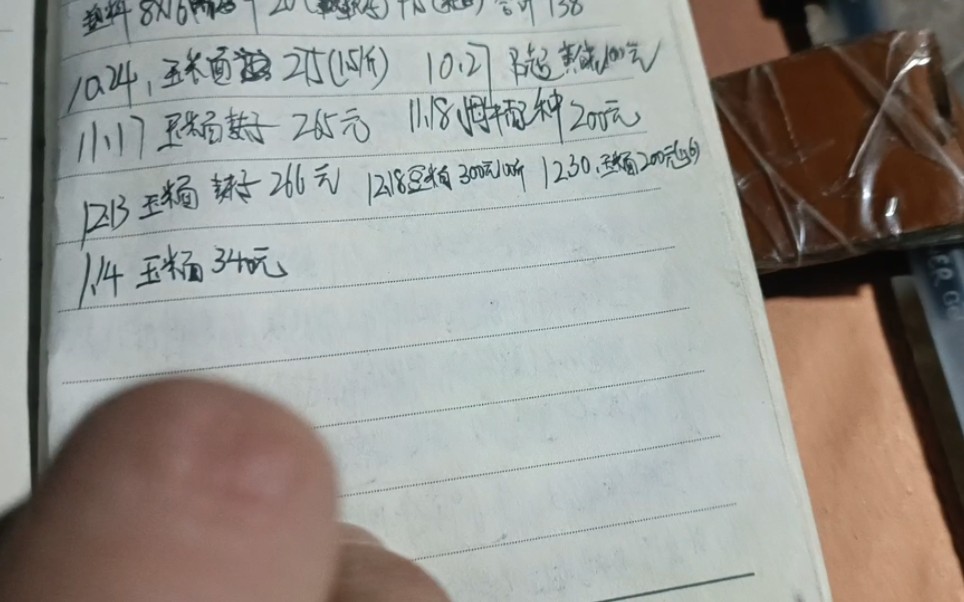 塑料 8×6 20 合计 138
10.24, 玉米面 215(15斤) 10.27 100元
11.17 玉米面 麸子 265元 11.18 母牛配种 200元
12.13 玉米面 麸子 266元 12.18 豆粕 300元100斤 12.30, 玉米面200元
1.14 玉米面 340元
ER